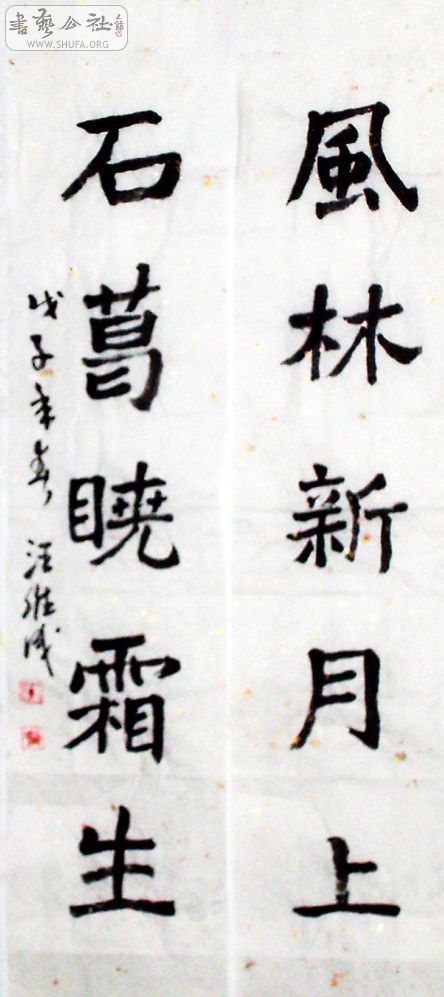 書藝公社
WWW.SHUFA.ORG
風林新月上
石葛曉霜生
戊子年春 汪維成